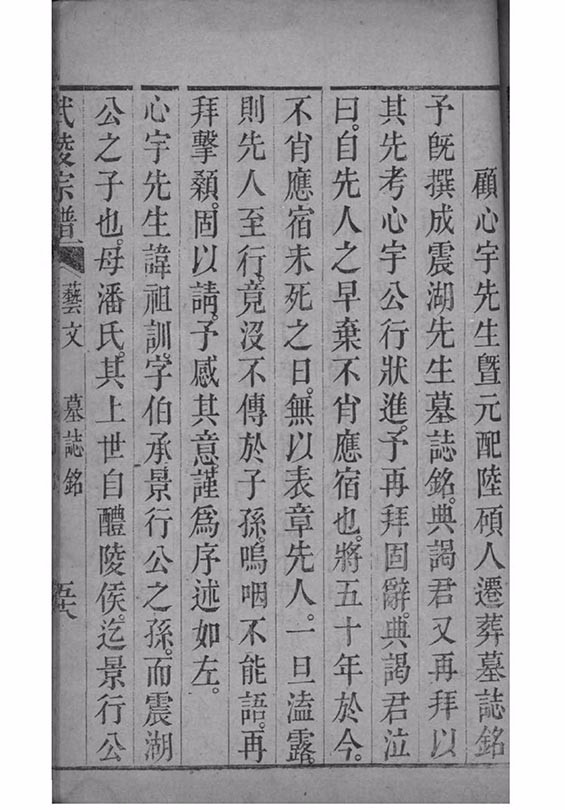 顧心宇先生暨元配陸碩人遷葬墓誌銘
予旣撰成震湖先生墓誌銘。典謁君又再拜以
其先考心宇公行狀進。予再拜固辭。典謁君泣
曰。自先人之早棄不肖應宿也。將五十年於今。
不肖應宿未死之日。無以表章先人。一旦溘露。
則先人至行。竟沒不傳於子孫。嗚咽不能語。再
拜擊顙。固以請。予感其意。謹爲序述如左。
心宇先生諱祖訓。字伯承景行公之孫。而震湖
公之子也。母潘氏。其上世自醴陵侯。迄景行公
武陵宗譜 藝文 墓誌銘